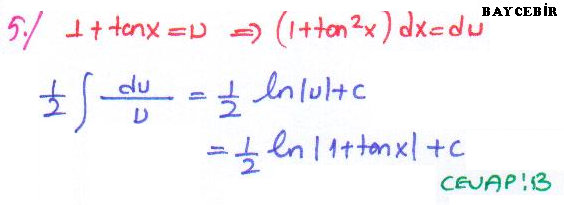 BAYCEBİR
5./ 1+tanx=u ⇒ (1+tan²x)dx=du
1/2 ∫ du/u = 1/2 ln|u|+c
= 1/2 ln|1+tanx|+c
CEVAP:B